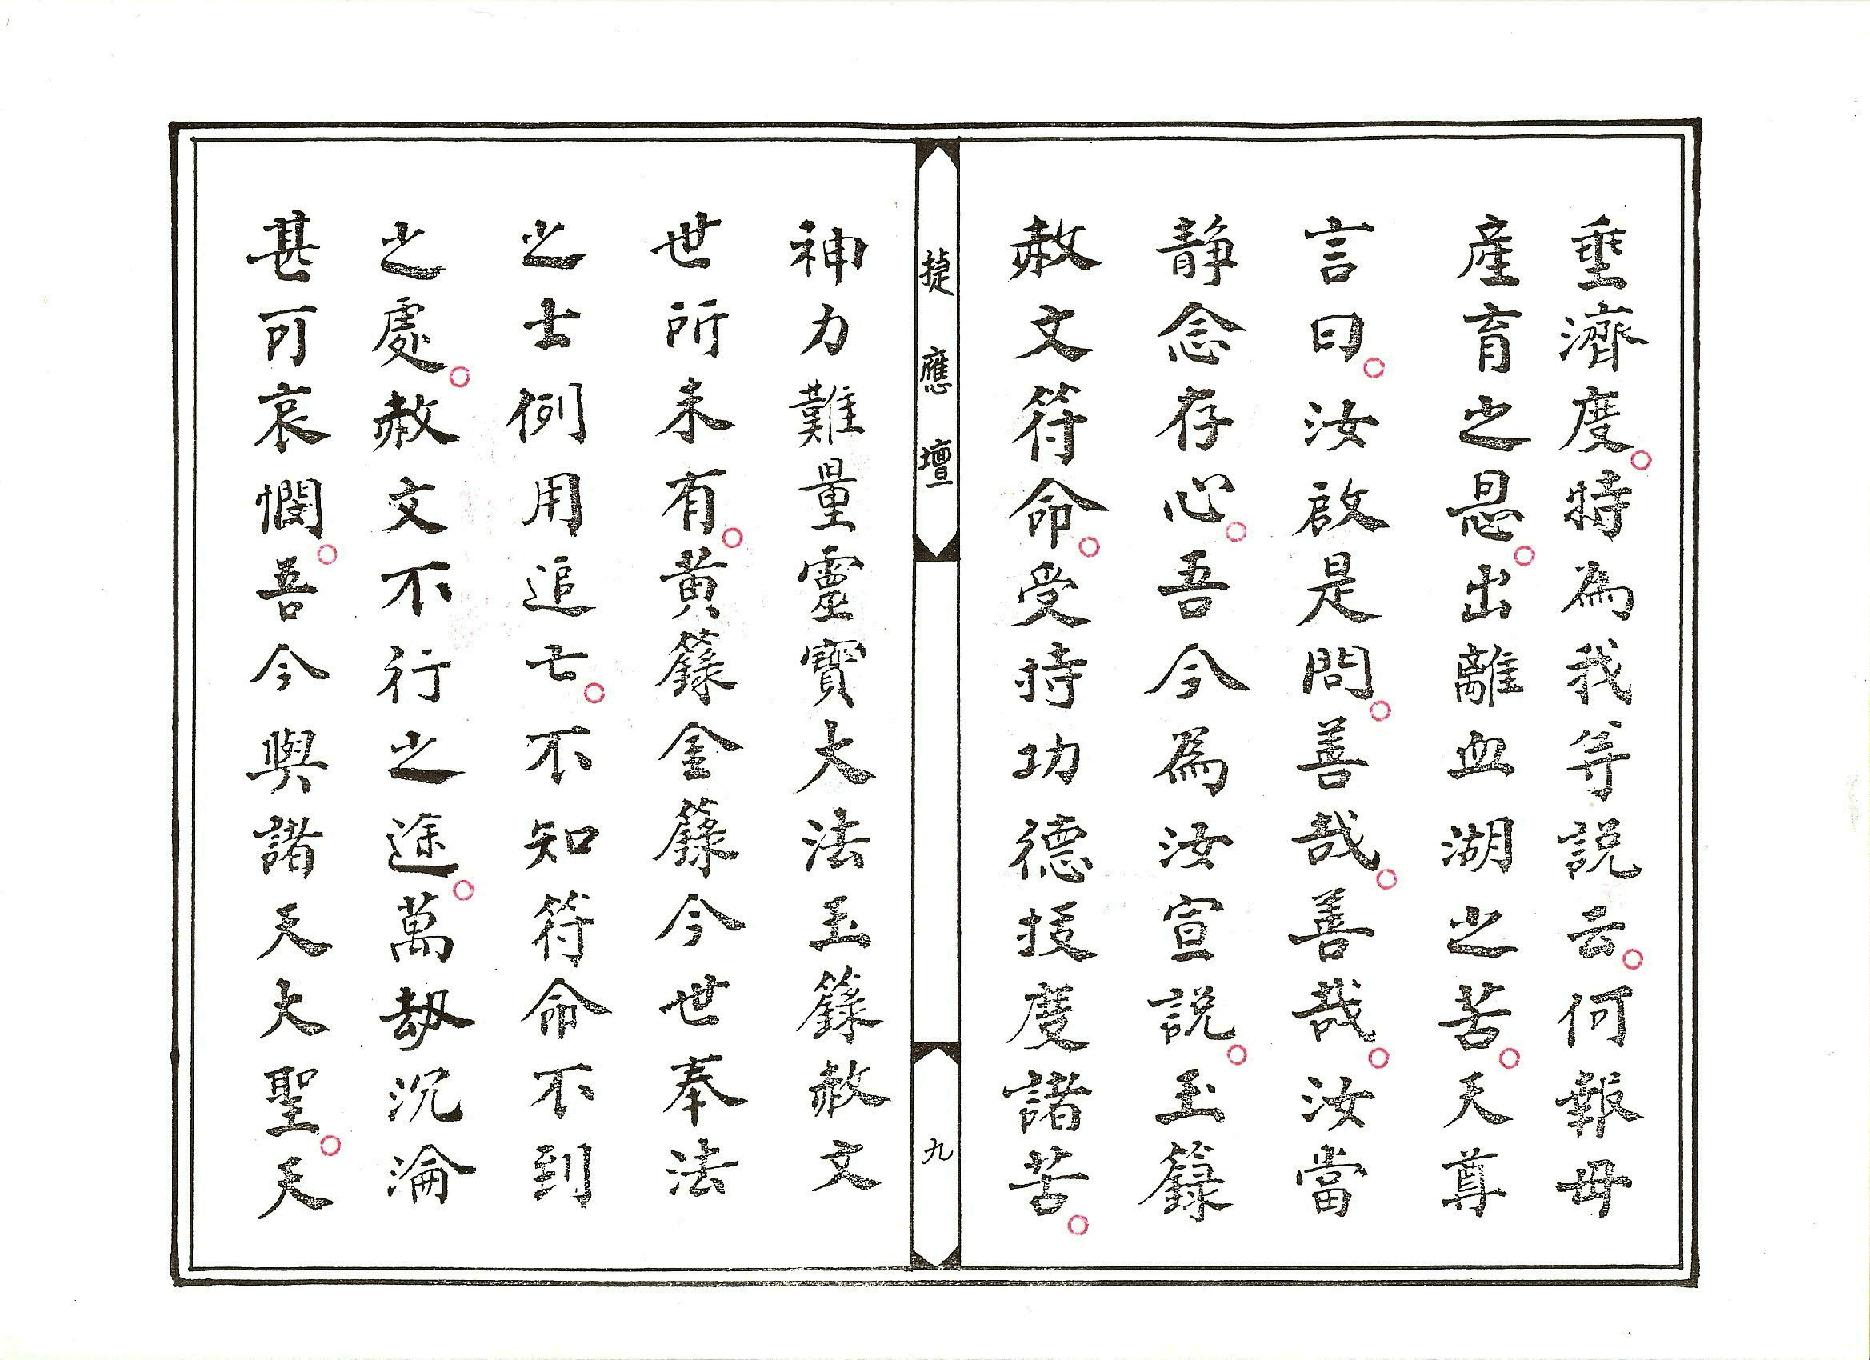 垂濟度。時為我等説云。何報母
產育之恩。出離血湖之苦。天尊
言曰。汝啟是問。善哉。善哉。汝當
靜念存心。吾今為汝宣説。玉籙
赦文符命。受持功德拔度諸苦。
捷應壇
九
神力難量靈寶大法玉籙赦文
世所未有。黄籙金籙今世奉法
之士例用追亡。不知符命不到
之處。赦文不行之途。萬劫沉淪
甚可哀憫。吾今與諸天大聖。天